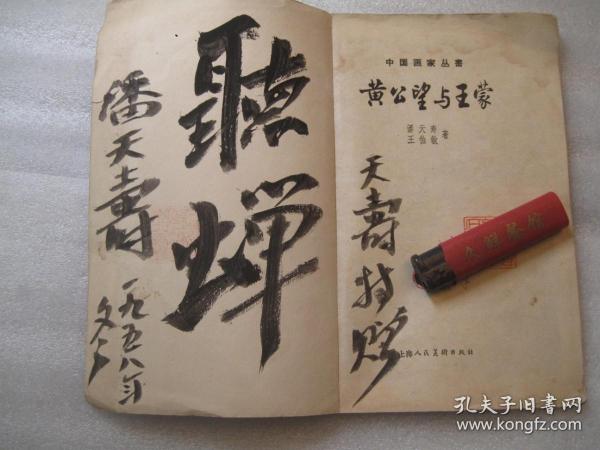 聽蟬
潘天壽
一九五八年
中国画家丛書
黄公望与王蒙
潘天寿
王伯敏 著
天壽持贈
上海人民美術出版社
孔夫子旧書网
www.kongfz.com